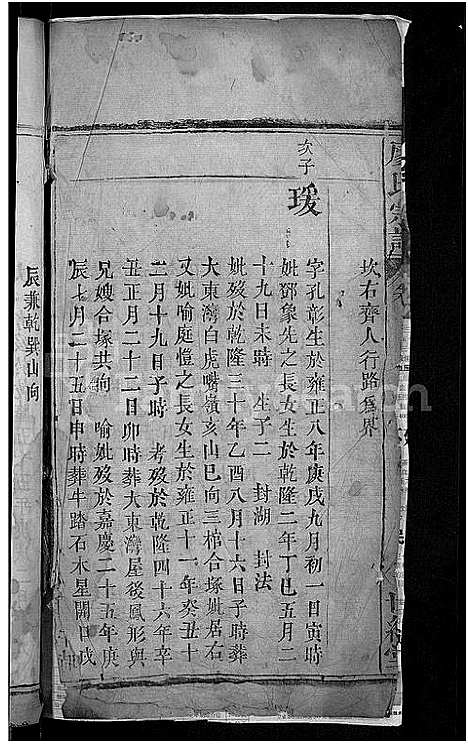 廖氏宗譜 卷
坎右齊人行路為界
次子
瑗
字孔彰生於雍正八年庚戌九月初一日寅時
妣鄧象先之長女生於乾隆二年丁巳五月二
十九日未時 生子二 封湖 封法
妣歿於乾隆三十年乙酉八月十六日子時葬
大東灣白虎嘴嶺亥山巳向三棺合塚妣居右
又妣喻庭愷之長女生於雍正十一年癸丑十
二月十九日子時 考歿於乾隆四十六年辛
丑正月二十二日卯時葬大東灣屋後鳳形與
兄嫂合塚共向 喻妣歿於嘉慶二十五年庚
辰七月二十五日申時葬牛踏石木星開口戌
辰兼乾巽山向